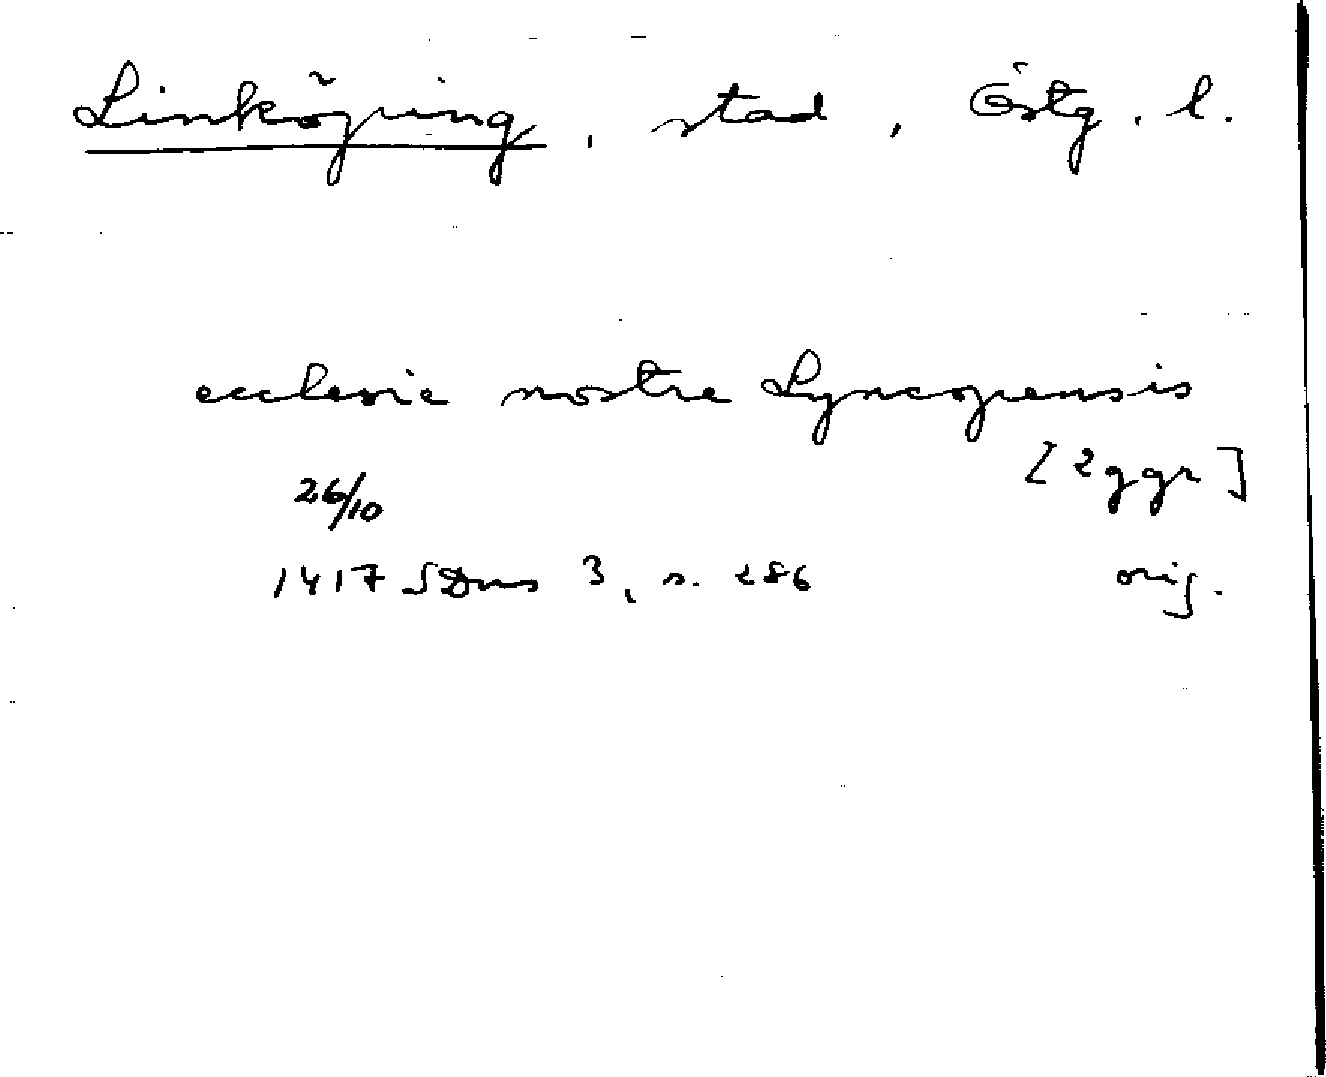 Linköping, stad, Östg. l.
ecclesie nostre Lyncopensis
[2 ggr]
26/10
1417 SDns 3, s. 286 orig.